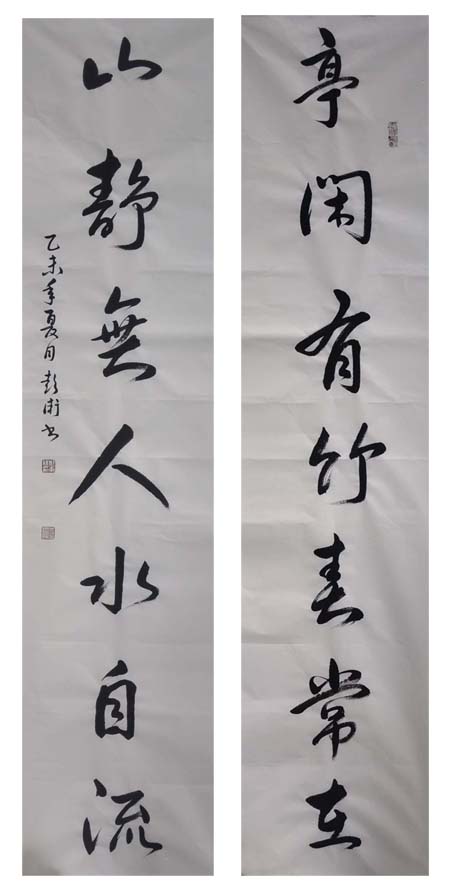 亭闲有竹春常在
山静無人水自流
乙未年夏月彭衍书